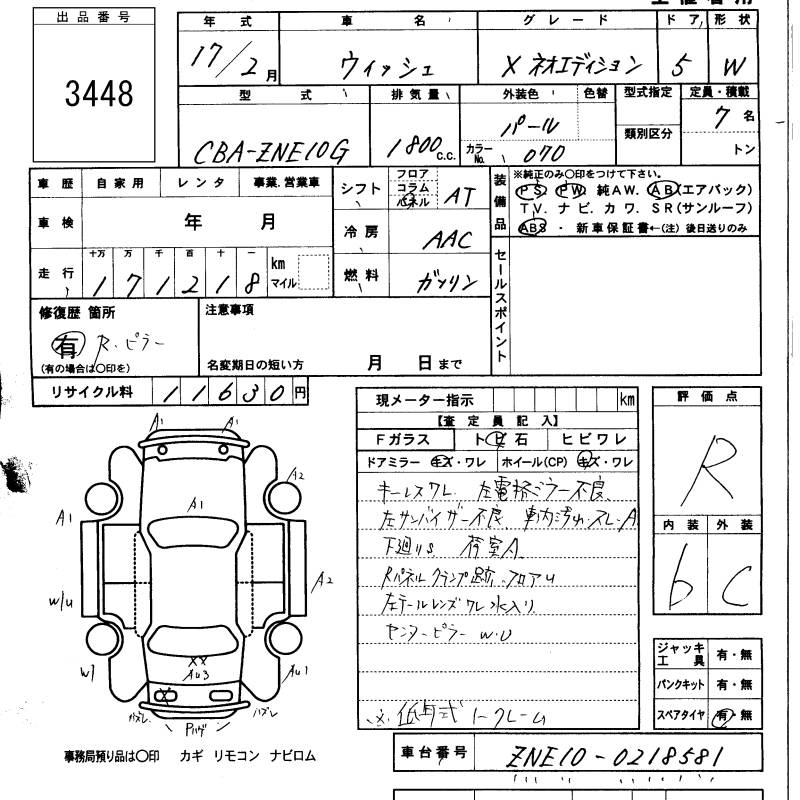 出品番号
3448
年式 車名 グレード ドア 形状
17/2月 ウィッシュ X ネオエディション 5 W
型式 排気量 外装色 色替 型式指定 定員・積載
CBA-ZNE10G 1800 c.c. パール 7名
カラーNo. 070 類別区分 トン
車歴 自家用 レンタ 事業.営業車
車検 年 月
走行 十万 万 千 百 十 一 km マイル
171218
シフト フロア コラム パネル AT
冷房 AAC
燃料 ガソリン
装備品
※純正のみ〇印をつけて下さい。
PS PW 純AW. AB(エアバック)
TV. ナビ. カワ. SR(サンルーフ)
ABS ・ 新車保証書←(注) 後日送りのみ
セールスポイント
修復歴 箇所
有 R.ピラー
(有の場合は〇印を)
注意事項
名変期日の短い方 月 日まで
リサイクル料 11630円
現メーター指示 km
【査定員記入】
Fガラス トビ石 ヒビワレ
ドアミラー キズ・ワレ ホイール(CP) キズ・ワレ
キーレスワレ 左電格ミラー不良
左サンバイザー不良 車内汚れ スレ.A
下廻りS 荷室A
Rパネルクランプ跡 フロアU
左テールレンズワレ 水入り
センターピラー W.U
※低年式 ノークレーム
評価点
R
内装 外装
b C
ジャッキ工具 有・無
パンクキット 有・無
スペアタイヤ 有・無
A1 A1
A2
A1
A1
A2
W/U
W1
XX
AU3
AU1
X
ガスレ
ハズレ
Pハゲ
事務局預り品は〇印 カギ リモコン ナビロム
車台番号 ZNE10-0218581